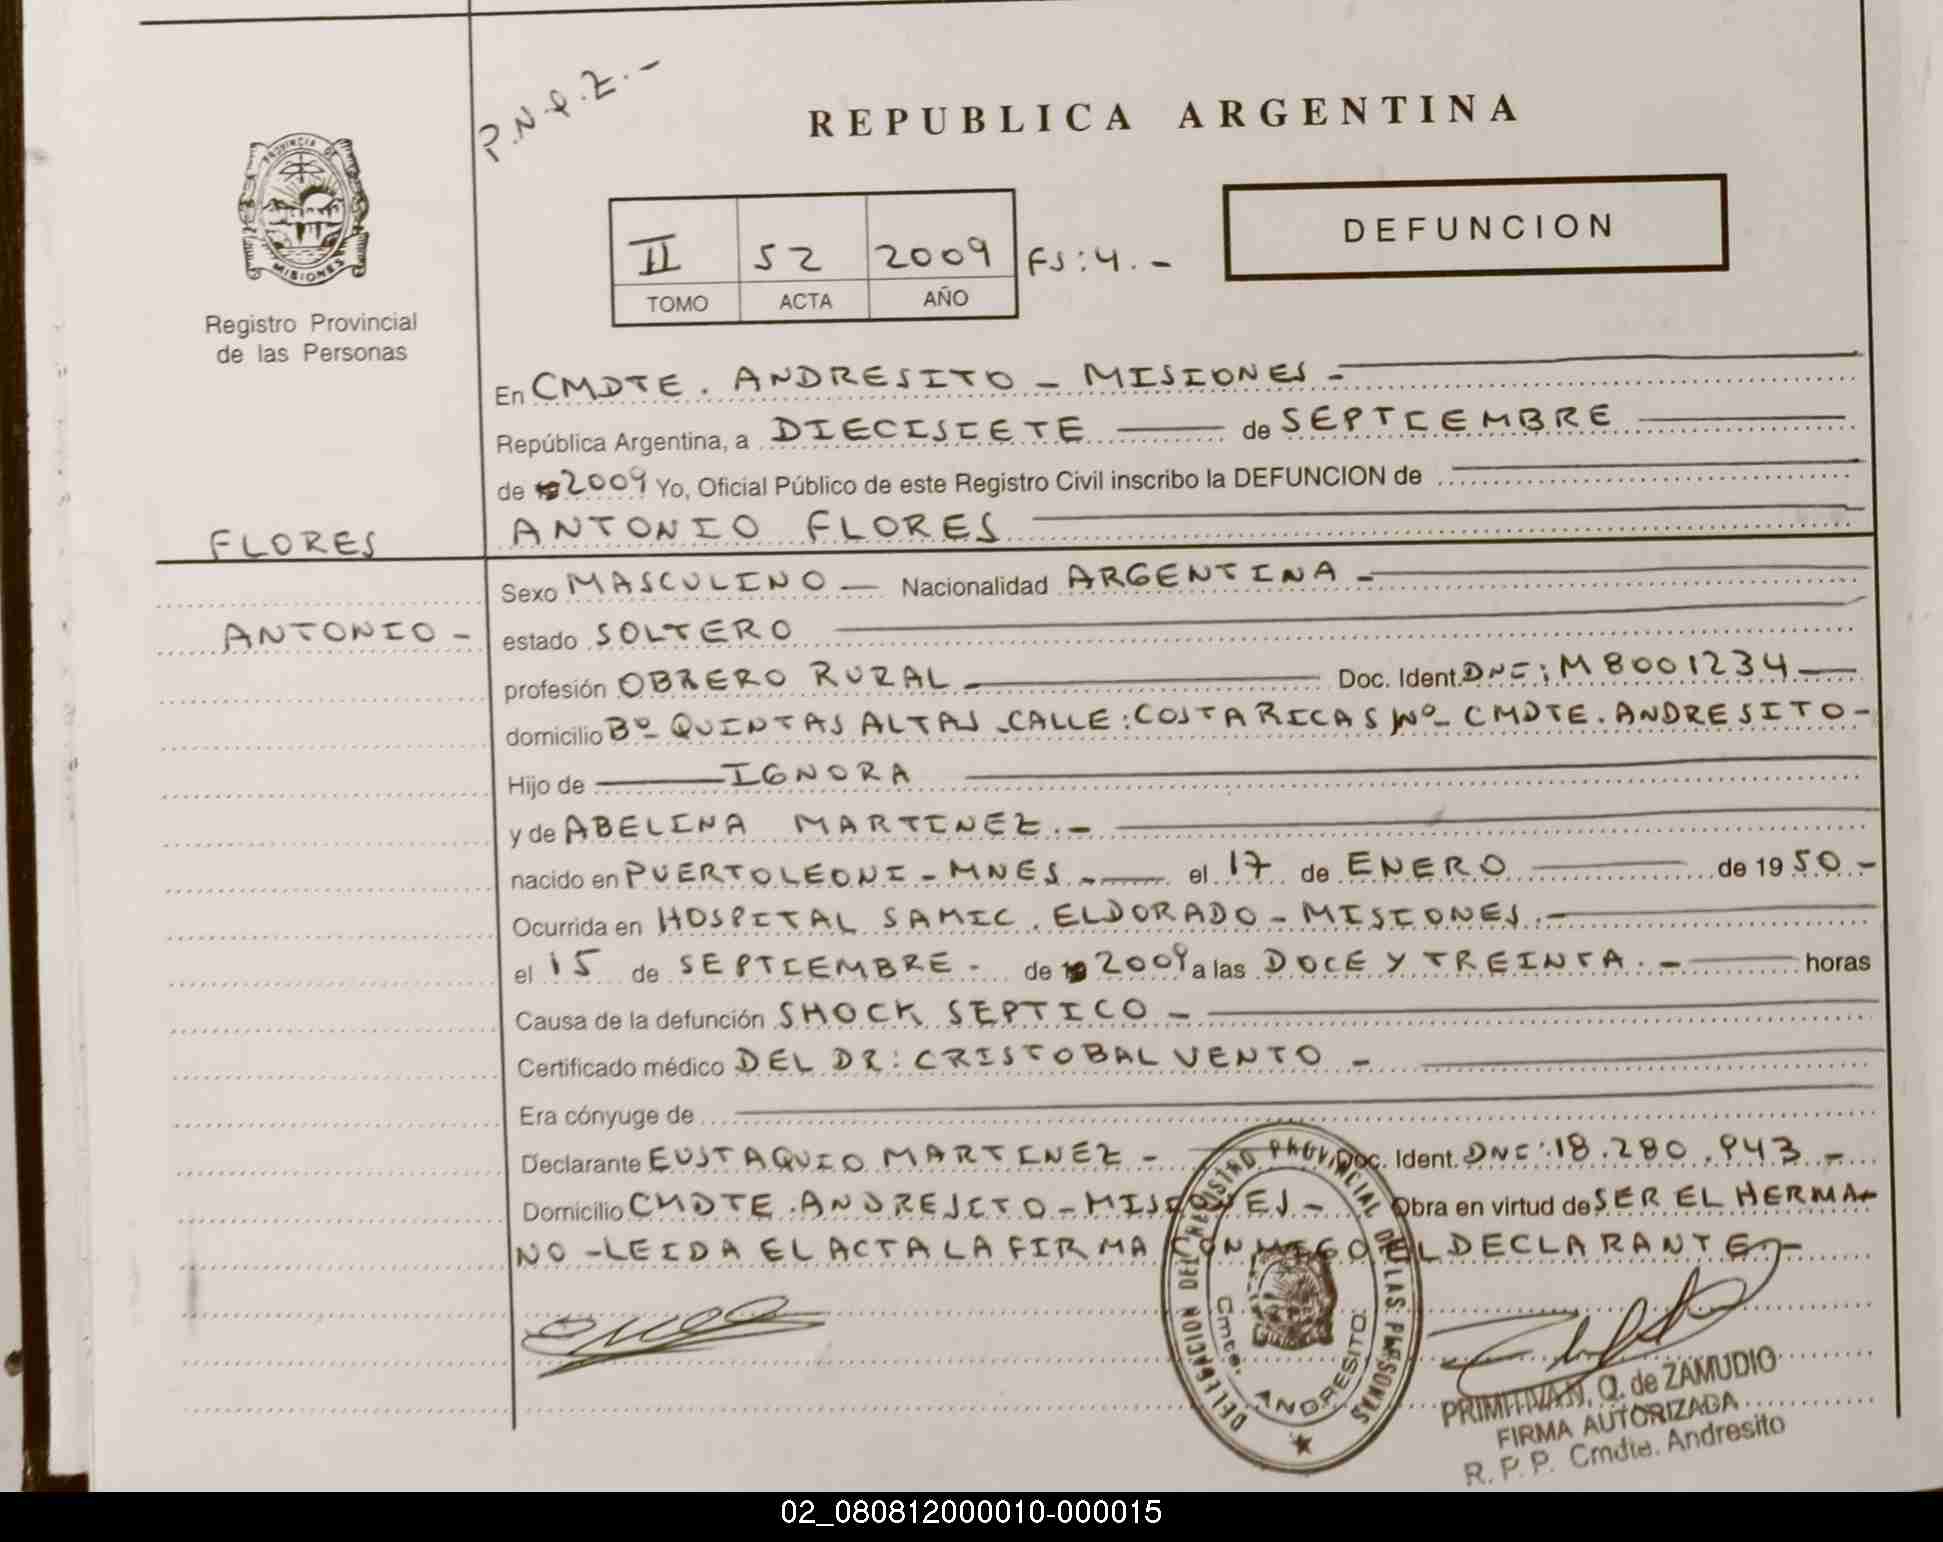 P.N.Q.Z.-
REPUBLICA ARGENTINA
PROVINCIA DE MISIONES
Registro Provincial
de las Personas
II 52 2009 FS:4.-
TOMO ACTA AÑO
DEFUNCION
En CMDTE. ANDRESITO - MISIONES -
República Argentina, a DIECISIETE de SEPTIEMBRE
de 2009 Yo, Oficial Público de este Registro Civil inscribo la DEFUNCION de
FLORES ANTONIO FLORES
Sexo MASCULINO — Nacionalidad ARGENTINA -
ANTONIO - estado SOLTERO
profesión OBRERO RURAL - Doc. Ident. DNI: M8001234 —
domicilio Bº QUINTAS ALTAS - CALLE: COSTA RICA S/Nº - CMDTE. ANDRESITO -
Hijo de IGNORA
y de ABELINA MARTINEZ.-
nacido en PUERTO LEONI - MNES - el 17 de ENERO de 1950.-
Ocurrida en HOSPITAL SAMIC. ELDORADO - MISIONES.-
el 15 de SEPTIEMBRE - de 2009 a las DOCE Y TREINTA.- horas
Causa de la defunción SHOCK SEPTICO -
Certificado médico DEL DR: CRISTOBAL VENTO -
Era cónyuge de
Declarante EUSTAQUIO MARTINEZ - Doc. Ident. DNI: 18.280.943.-
Domicilio CMDTE. ANDRESITO - MISIONES - Obra en virtud de SER EL HERMA-
NO - LEIDA EL ACTA LA FIRMA CONMIGO EL DECLARANTE.-
DELEGACION DEL REGISTRO PROVINCIAL DE LAS PERSONAS
Cmte. ANDRESITO
PRIMITIVA N. Q. de ZAMUDIO
FIRMA AUTORIZADA
R. P. P. Cmdte. Andresito
02_080812000010-000015